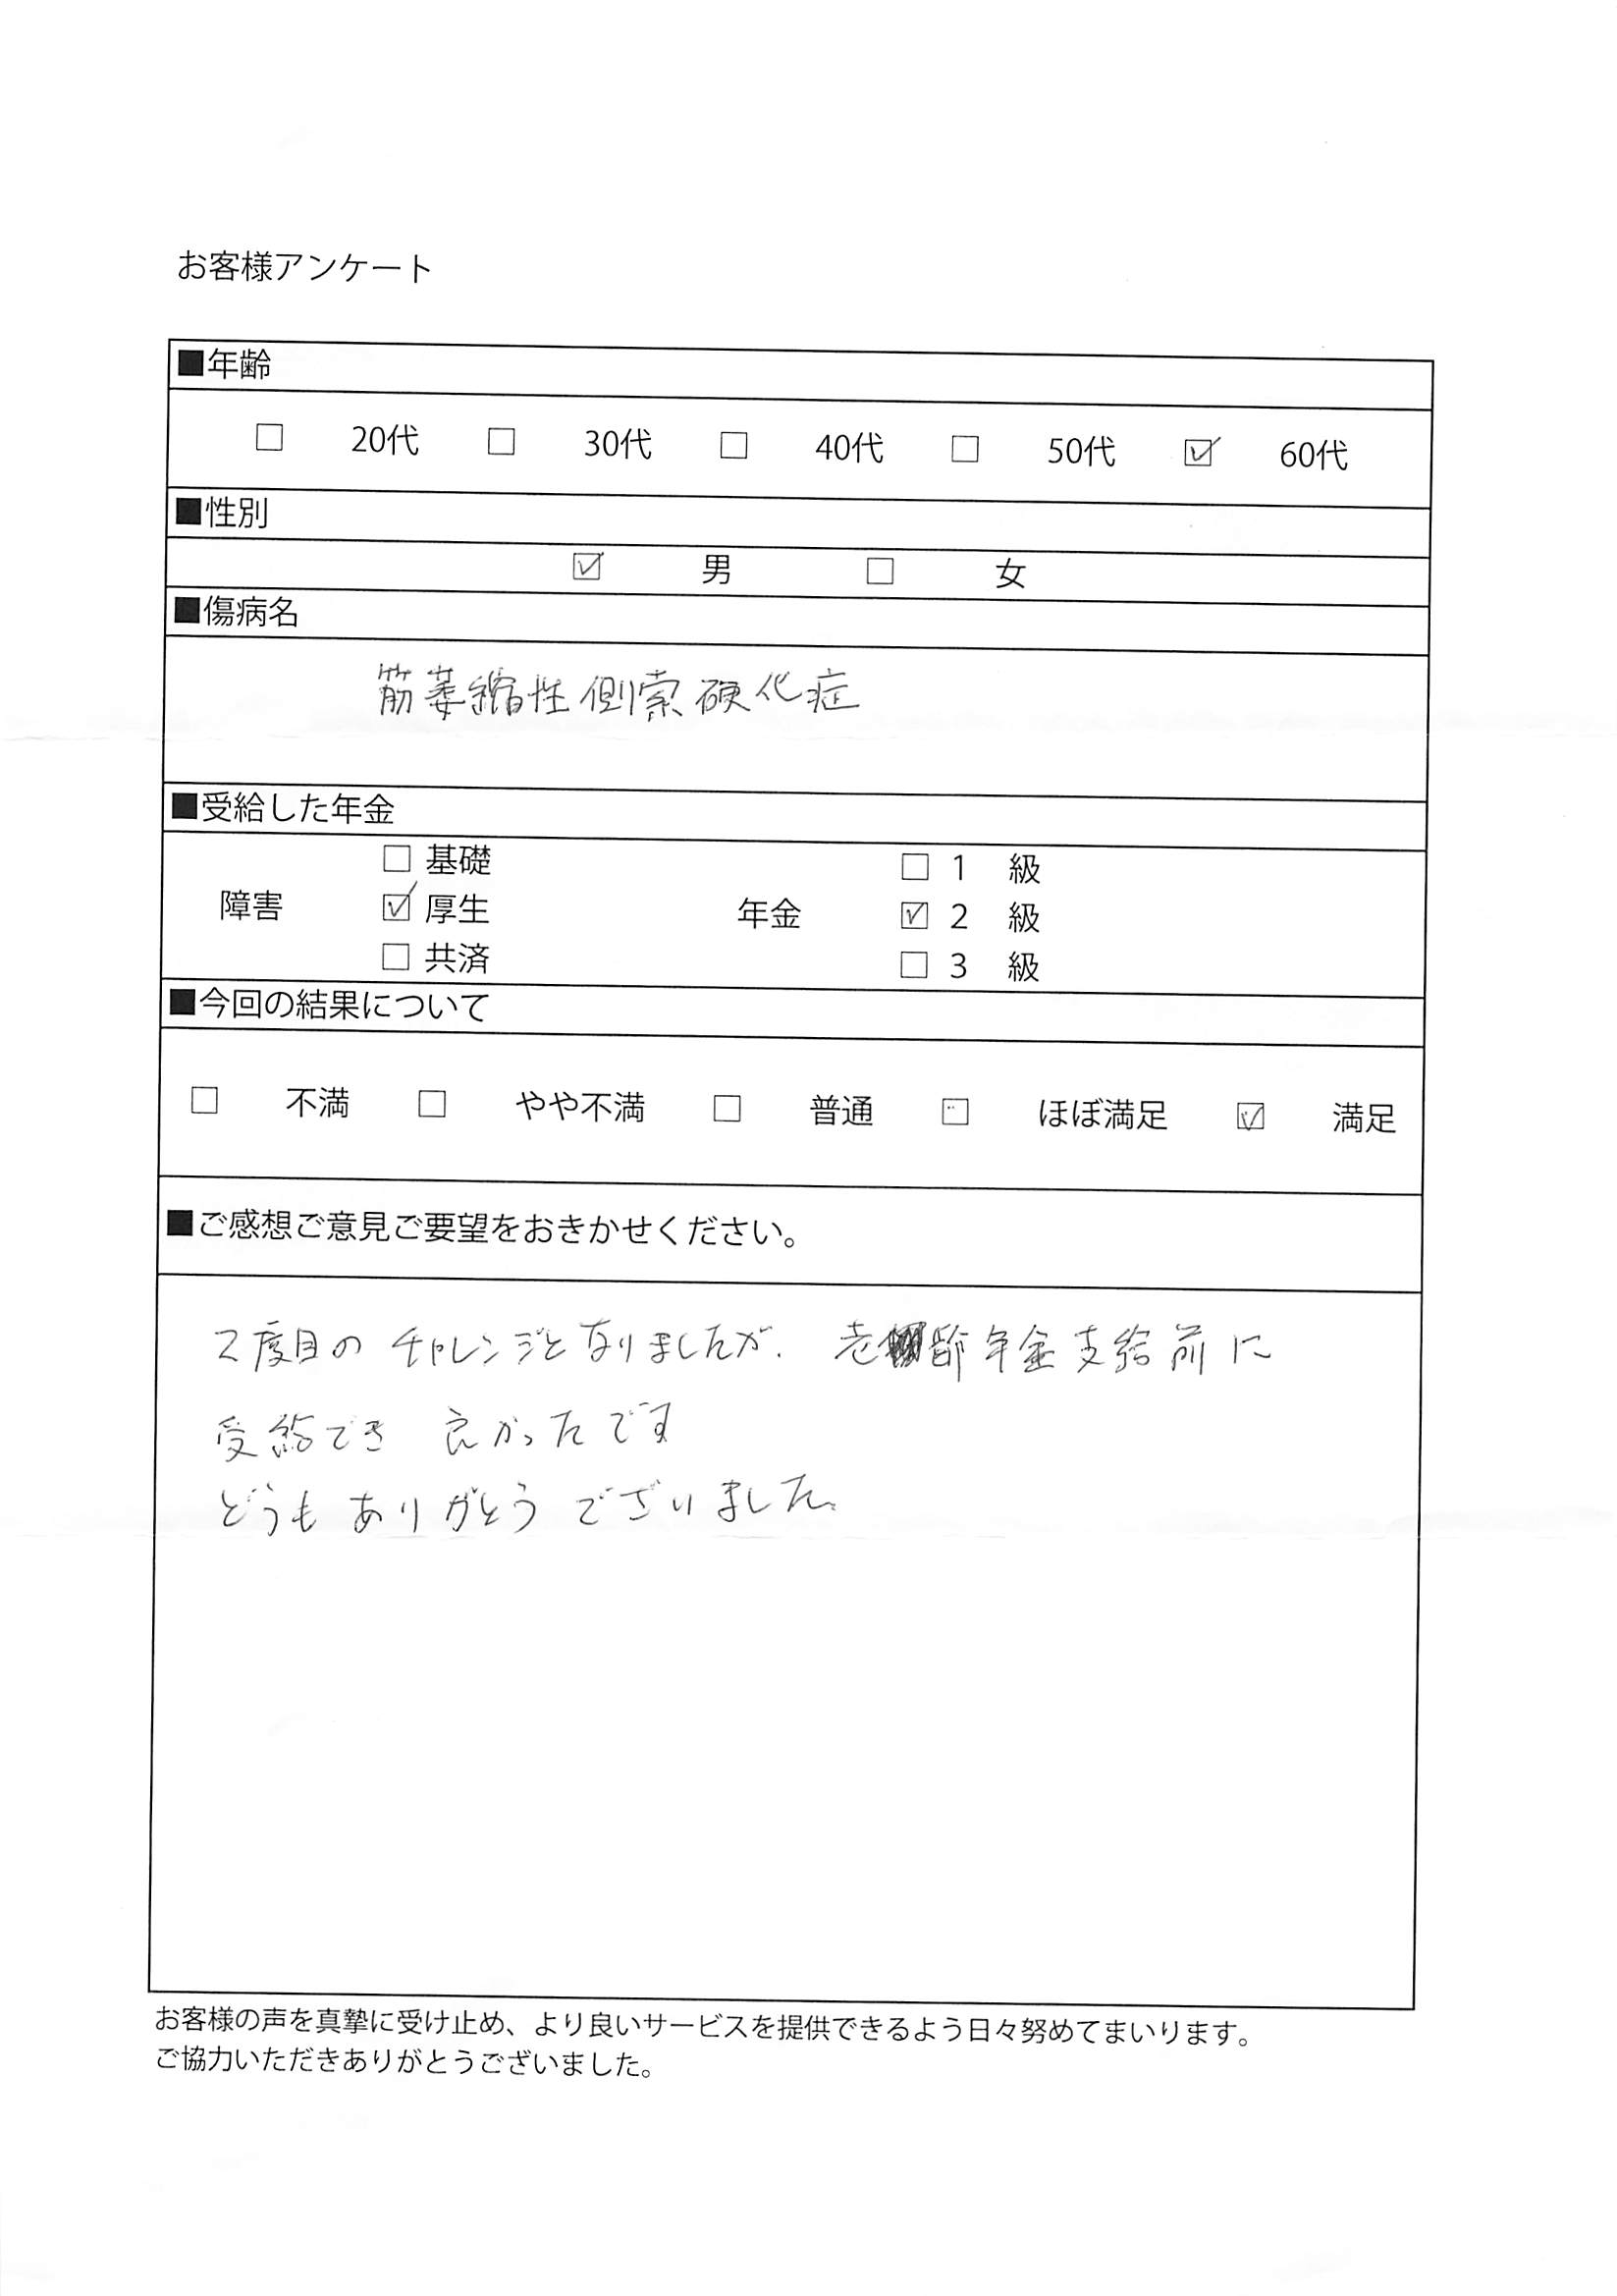 お客様アンケート
■年齢
□ 20代 □ 30代 □ 40代 □ 50代 ☑ 60代
■性別
☑ 男 □ 女
■傷病名
筋萎縮性側索硬化症
■受給した年金
□ 基礎 □ 1 級
障害 ☑ 厚生 年金 ☑ 2 級
□ 共済 □ 3 級
■今回の結果について
□ 不満 □ やや不満 □ 普通 □ ほぼ満足 ☑ 満足
■ご感想ご意見ご要望をおきかせください。
2度目のチャレンジとなりましたが、老齢年金支給前に
受給でき 良かったです
どうもありがとうございました。
お客様の声を真摯に受け止め、より良いサービスを提供できるよう日々努めてまいります。
ご協力いただきありがとうございました。